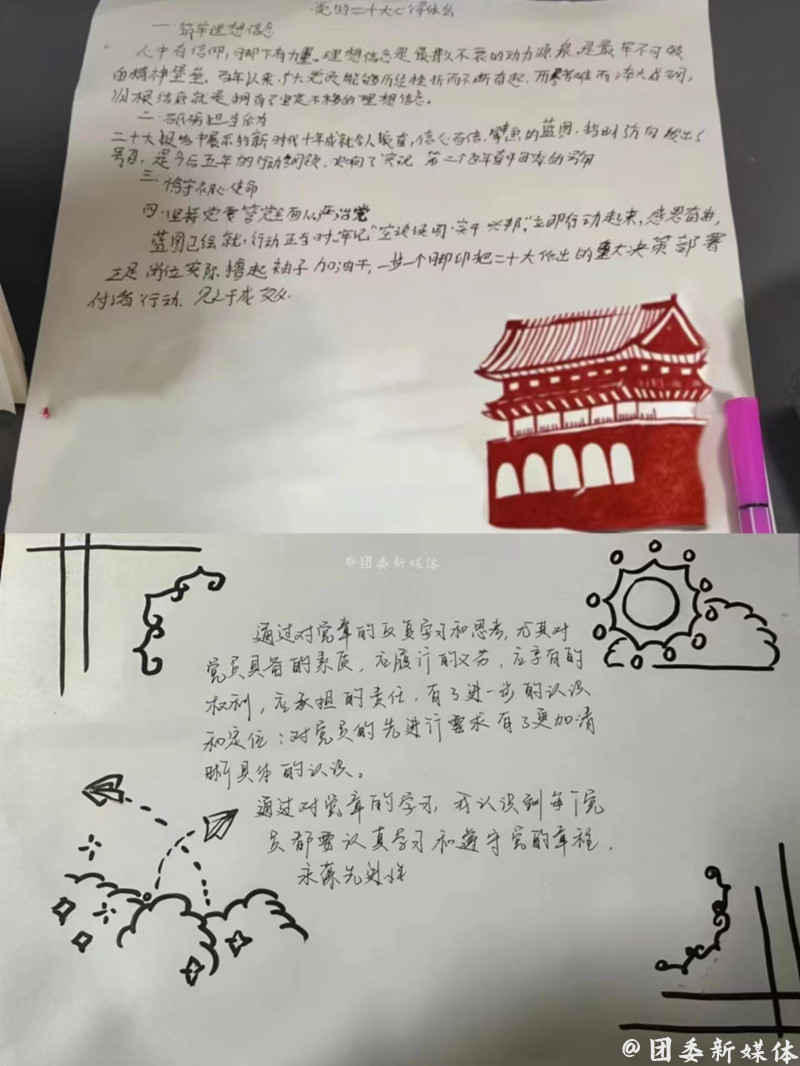 党的二十大心得体会
一.筑牢理想信念
人中有信仰,脚下有力量。理想信念是最持久不衰的动力源泉,是最牢不可破
由精神堡垒。百年以来,大党员能够历经挫折而不断奋起,历尽苦难而淬火成钢,
归根结底就是拥有了坚定不移的理想信念。
二.砥砺担当作为
二十大报告中展示的新时代十年成就令人振奋,信心百倍,擘画的蓝图,指明方向 发出了
号召,是今后五年的行动纲领,吹响了实现 第二个百年奋斗目标的号角
三.恪守初心使命
四.坚持党要管党全面从严治党
蓝图已绘就,行动正当时.牢记"空谈误国,实干兴邦",立即行动起来,感恩奋进,
立足岗位实际,撸起袖子加油干,一步一个脚印把二十大作出的重大决策部署
付诸行动、见之于成效.
@团委新媒体
通过对党章的反复学习和思考,尤其对
党员具备的素质,应履行的义务,应享有的
权利,应承担的责任,有了进一步的认识
和定位;对党员的先进行要求有了更加清
晰具体的认识。
通过对党章的学习,我认识到每个党
员都要认真学习和遵守党的章程,
永葆先进性
@团委新媒体